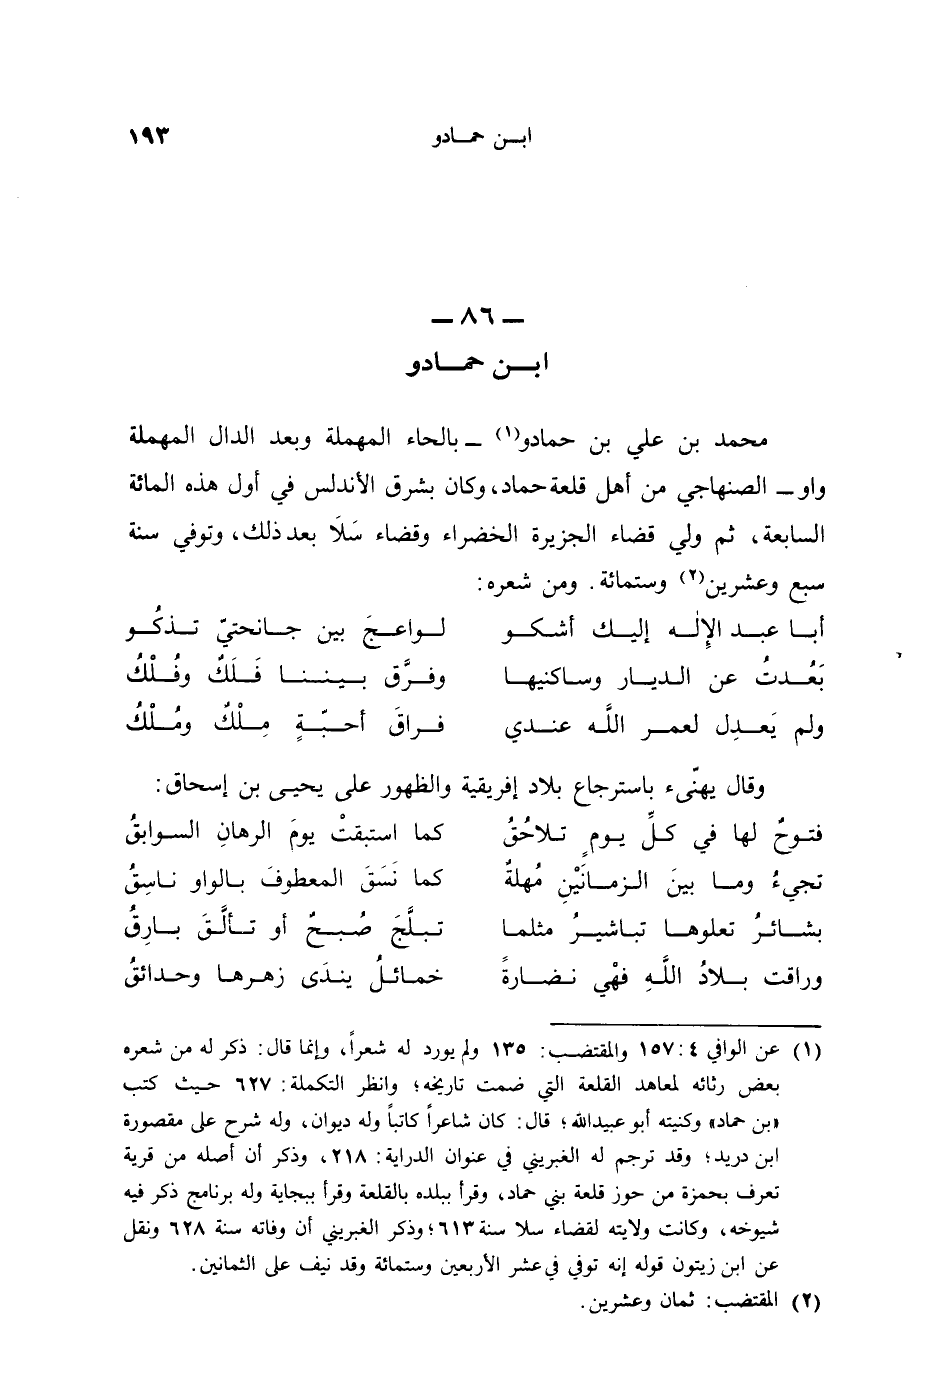 ابن حمادو ١٩٣
— ٨٦ —
ابن حمادو
محمد بن علي بن حمادو(١) — بالحاء المهملة وبعد الدال المهملة
واو — الصنهاجي من أهل قلعة حماد، وكان بشرق الأندلس في أول هذه المائة
السابعة، ثم ولي قضاء الجزيرة الخضراء وقضاء سَلَا بعد ذلك، وتوفي سنة
سبع وعشرين(٢) وستمائة. ومن شعره:
أبا عبد الإِلٰه إليك أشكو لواعجَ بين جانحتيّ تذكُو
بَعُدتُ عن الديار وساكنيها وفرَّق بيننا فَلَكٌ وفُلْكُ
ولم يَعدِل لعمر اللَّه عندي فراقَ أحبّةٍ مِلْكٌ ومُلْكُ
وقال يهنّىء باسترجاع بلاد إفريقية والظهور على يحيى بن إسحاق:
فتوحٌ لها في كلِّ يومٍ تلاحُقُ كما استبقتْ يومَ الرهانِ السوابقُ
تجيءُ وما بينَ الزمانَيْنِ مُهلةٌ كما نَسَقَ المعطوفَ بالواو ناسِقُ
بشائرُ تعلوها تباشيرُ مثلما تبلَّجَ صُبحٌ أو تألَّقَ بارِقُ
وراقت بلادُ اللَّهِ فهْي نضارةً خمائلُ يندَى زهرها وحدائقُ
(١) عن الوافي ٤: ١٥٧ والمقتضب: ١٣٥ ولم يورد له شعراً، وإنما قال: ذكر له من شعره
بعض رثائه لمعاهد القلعة التي ضمت تاريخه؛ وانظر التكملة: ٦٢٧ حيث كتب
«بن حماد» وكنيته أبو عبيدالله؛ قال: كان شاعراً كاتباً وله ديوان، وله شرح على مقصورة
ابن دريد؛ وقد ترجم له الغبريني في عنوان الدراية: ٢١٨، وذكر أن أصله من قرية
تعرف بحمزة من حوز قلعة بني حماد، وقرأ ببلده بالقلعة وقرأ ببجاية وله برنامج ذكر فيه
شيوخه، وكانت ولايته لقضاء سلا سنة ٦١٣؛ وذكر الغبريني أن وفاته سنة ٦٢٨ ونقل
عن ابن زيتون قوله إنه توفي في عشر الأربعين وستمائة وقد نيف على الثمانين.
(٢) المقتضب: ثمان وعشرين.